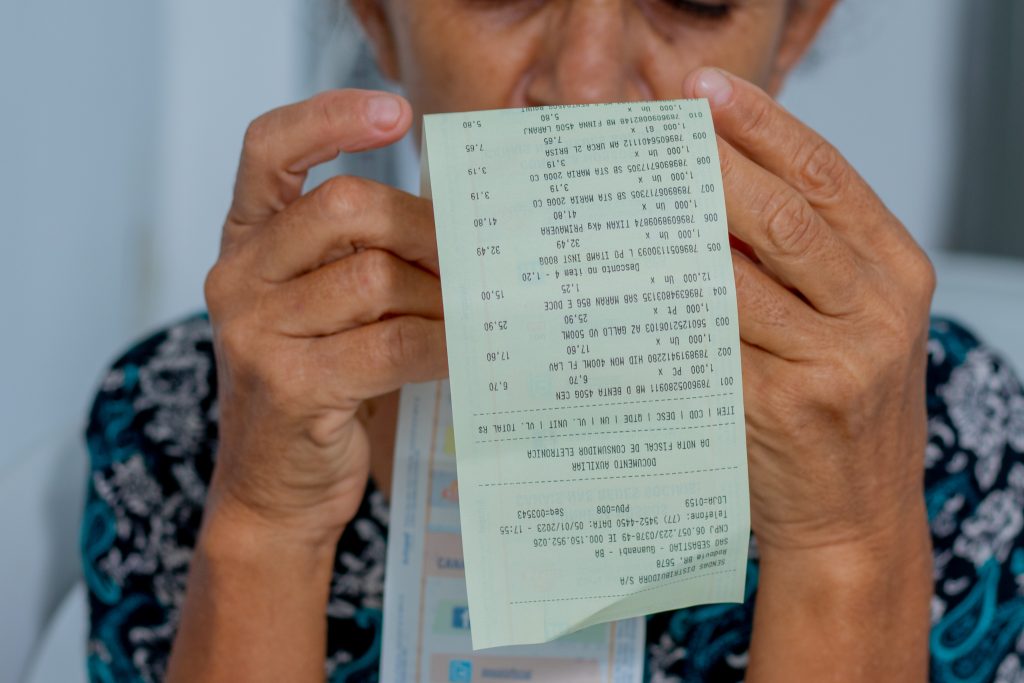 SENDAS DISTRIBUIDORA S/A
Rodovia BR, 5678
SAO SEBASTIAO - Guanambi - BA
CNPJ 06.057.223/0378-49 IE 000.150.952.026
Telefone: (77) 3452-4450 DATA: 05/01/2023 - 17:55
LOJA=0159 PDV=008 Seq=003543
DOCUMENTO AUXILIAR
DA NOTA FISCAL DE CONSUMIDOR ELETRONICA
ITEM | COD | DESC | QTDE | UN | VL. UNIT | VL. TOTAL R$
001 7896005280911 MB D BENTA 450G CEN
1,000 PC x 6,70 6,70
002 7898919412280 HID MON 400ML FL LAV
1,000 Un x 17,60 17,60
003 5601252106103 AZ GALLO VD 500ML
1,000 Pt x 25,90 25,90
004 7896394803135 SAB MARAN 85G E DOCE
12,000 Un x 1,25 15,00
Desconto no item 4 - 1,20
005 7896051130093 L PO ITAMB INST 800G
1,000 Un x 32,49 32,49
006 7896098909874 TIXAN 4kg PRIMAVERA
1,000 Un x 41,80 41,80
007 7898906717305 SB STA MARIA 200G CO
1,000 Un x 3,19 3,19
008 7898906717305 SB STA MARIA 200G CO
1,000 Un x 3,19 3,19
009 7896056401112 AM URCA 2L BRISA
1,000 Gl x 7,65 7,65
010 7896090682148 MB FINNA 450G LARANJ
1,000 Un x 5,80 5,80